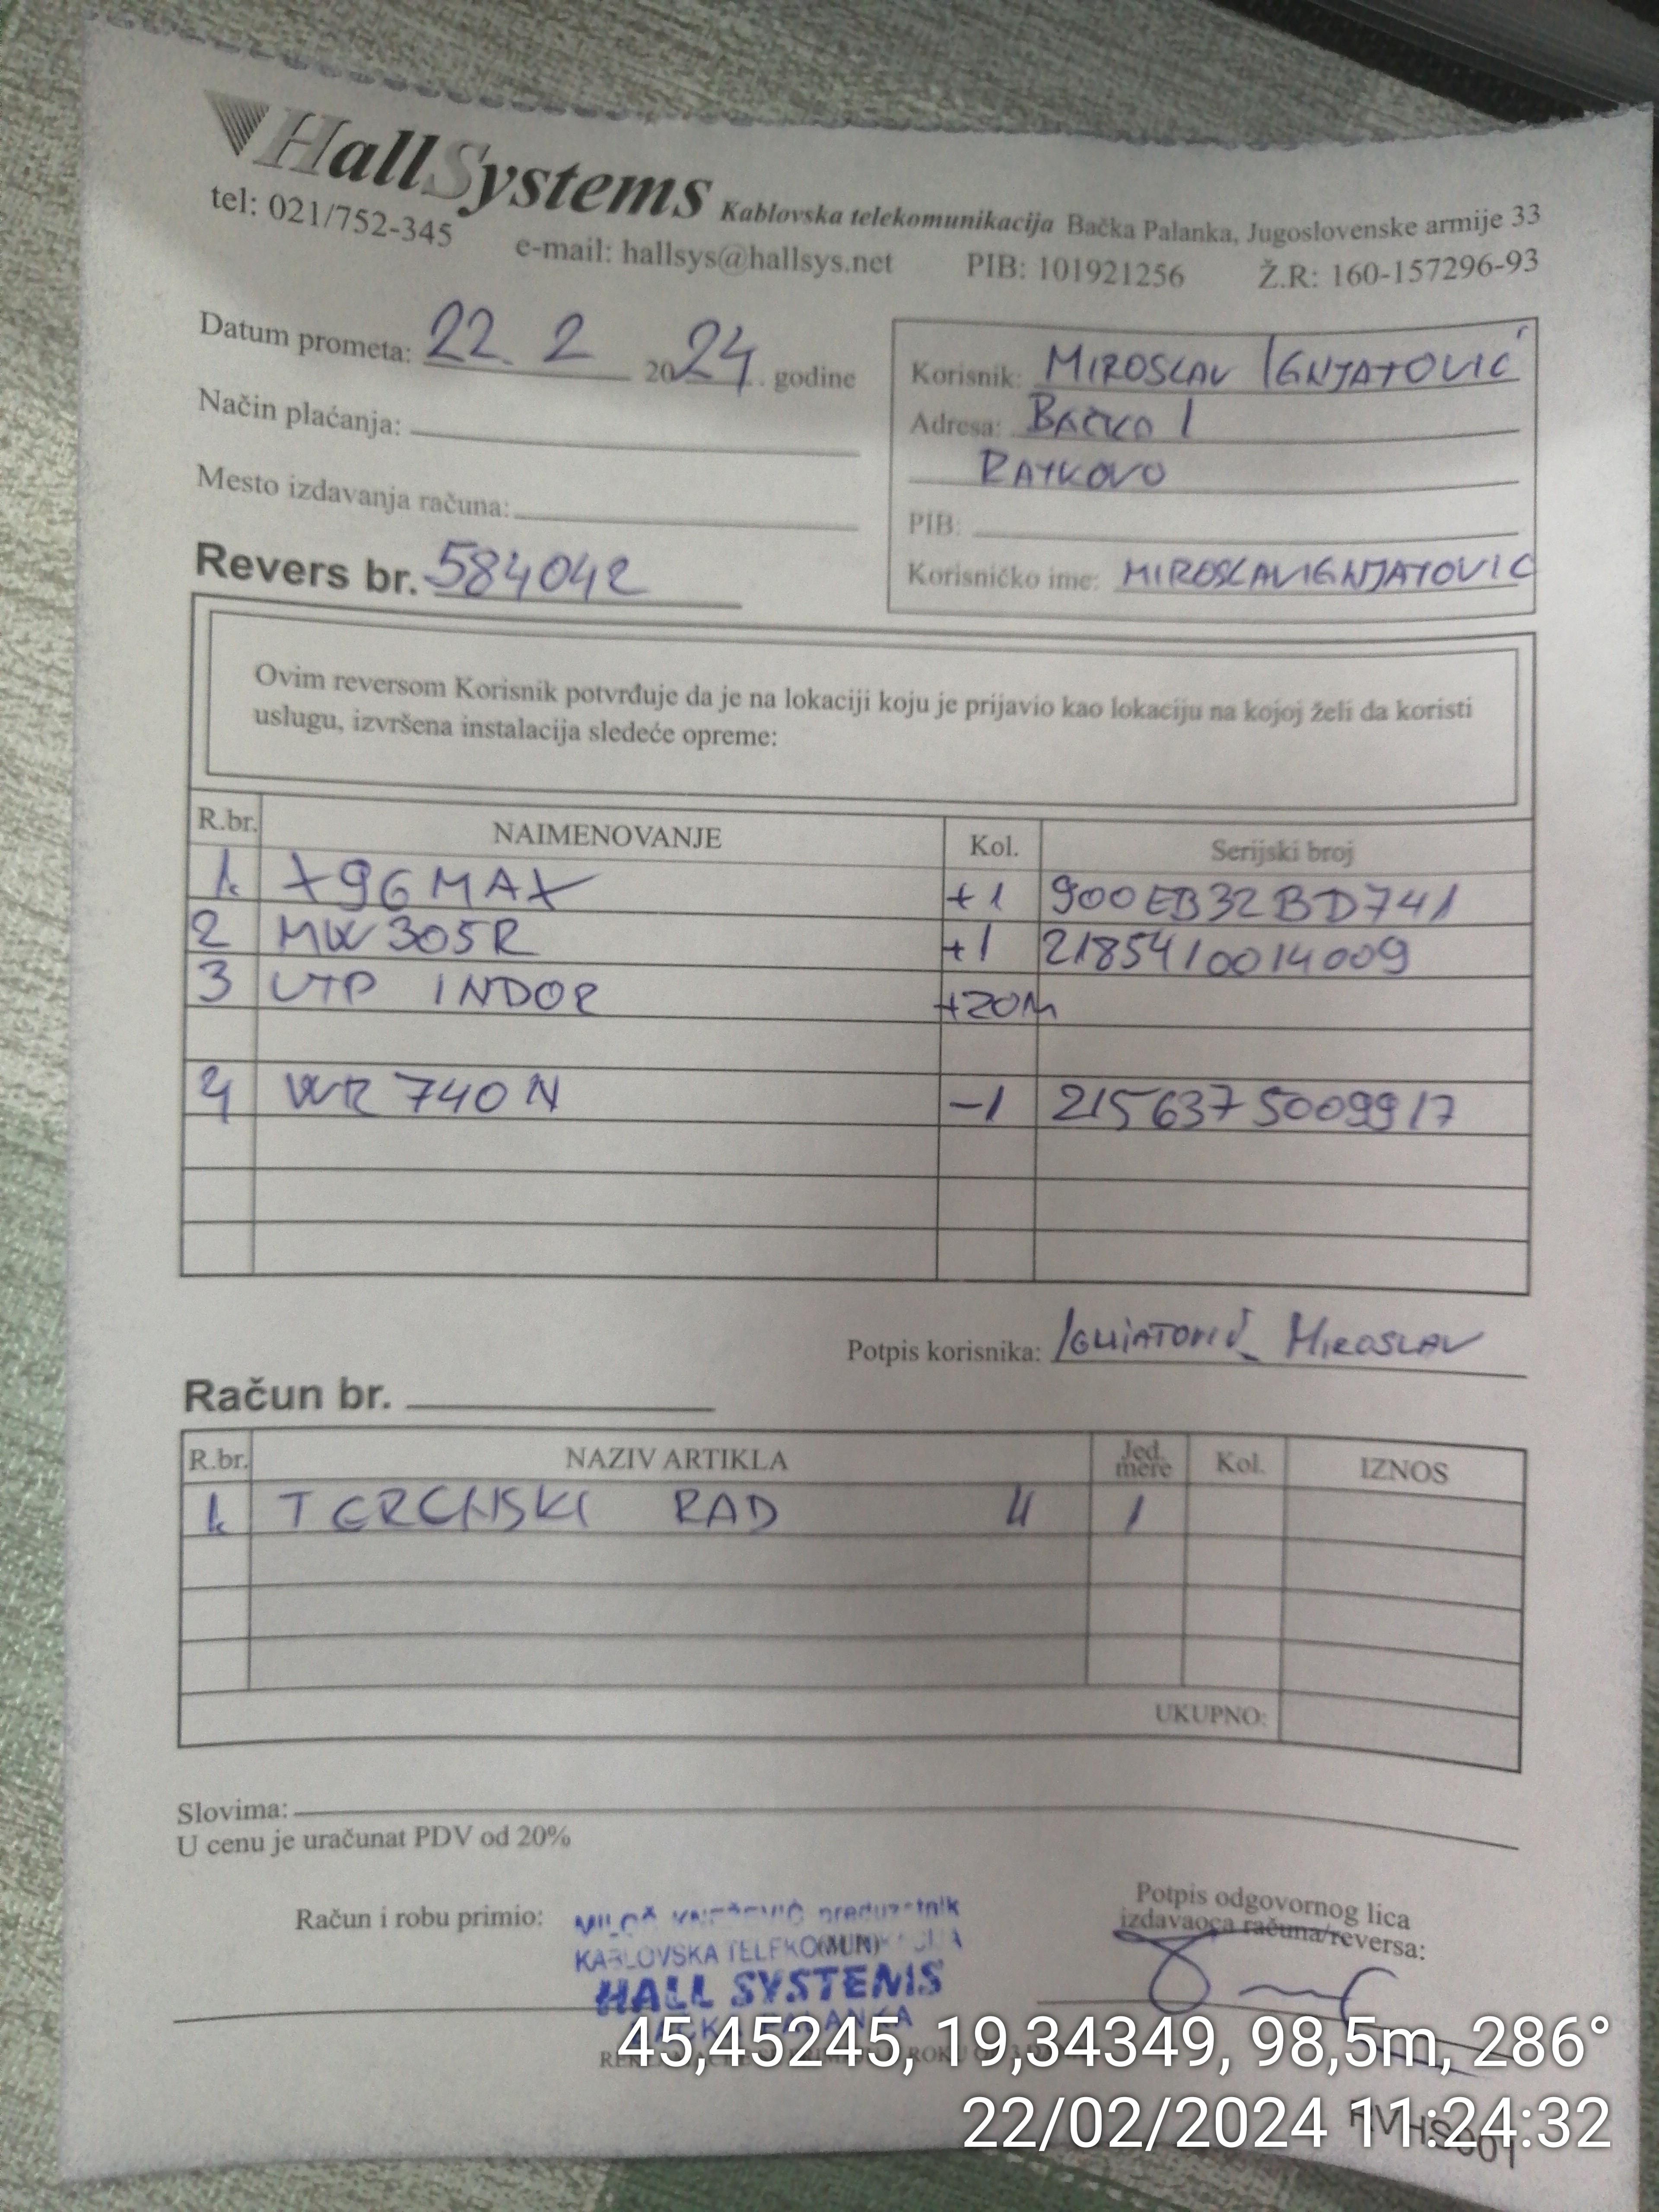 HallSystems Kablovska telekomunikacija Bačka Palanka, Jugoslovenske armije 33
tel: 021/752-345 e-mail: hallsys@hallsys.net PIB: 101921256 Ž.R: 160-157296-93
Datum prometa: 22. 2 2024. godine
Način plaćanja:
Mesto izdavanja računa:
Revers br. 584042
Korisnik: MIROSLAV IGNJATOVIĆ
Adresa: BAČKA 1
RATKOVO
PIB:
Korisničko ime: MIROSLAVIGNJATOVIC
Ovim reversom Korisnik potvrđuje da je na lokaciji koju je prijavio kao lokaciju na kojoj želi da koristi
uslugu, izvršena instalacija sledeće opreme:
R.br. NAIMENOVANJE Kol. Serijski broj
1. X96MAX +1 900EB32BD741
2 MW305R +1 2185410014009
3 UTP INDOR +20M
4 WR740N -1 2156375009917
Potpis korisnika: IGNJATOVIĆ MIROSLAV
Račun br.
R.br. NAZIV ARTIKLA Jed. mere Kol. IZNOS
1. TERENSKI RAD 4 1
UKUPNO:
Slovima:
U cenu je uračunat PDV od 20%
Račun i robu primio:
MILOŠ KNEŽEVIĆ preduzetnik
KABLOVSKA TELEKOMUNIKACIJA
HALL SYSTEMS
BAČKA PALANKA
Potpis odgovornog lica
izdavaoca računa/reversa:
45,45245, 19,34349, 98,5m, 286°
22/02/2024 11:24:32
RVHS001